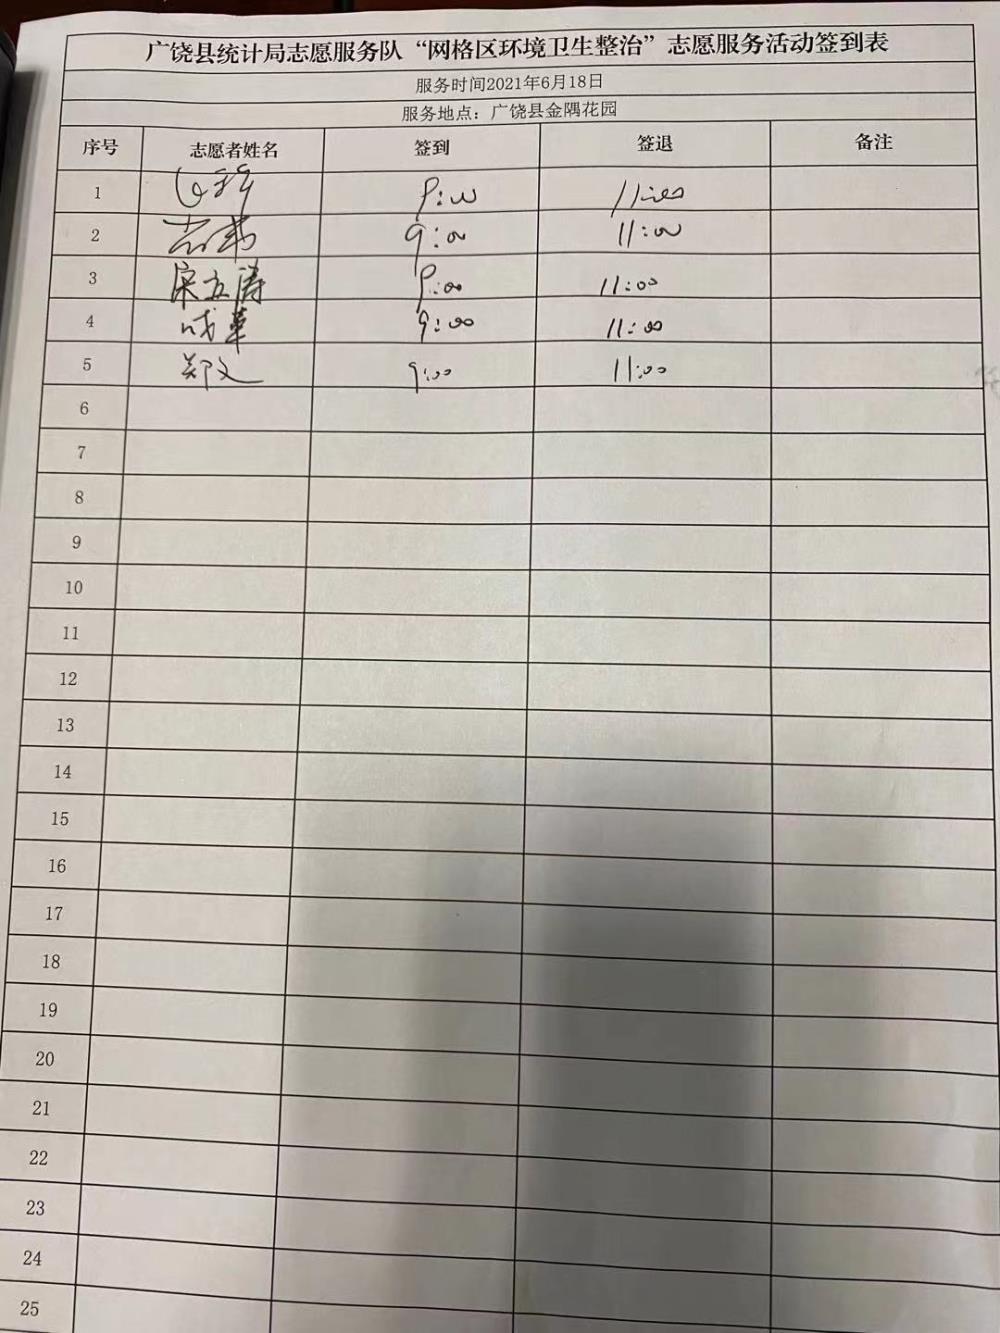 广饶县统计局志愿服务队“网格区环境卫生整治”志愿服务活动签到表
服务时间2021年6月18日
服务地点：广饶县金隅花园
序号 志愿者姓名 签到 签退 备注
1 9:00 11:00
2 9:00 11:00
3 9:00 11:00
4 9:00 11:00
5 郑文 9:00 11:00
6
7
8
9
10
11
12
13
14
15
16
17
18
19
20
21
22
23
24
25